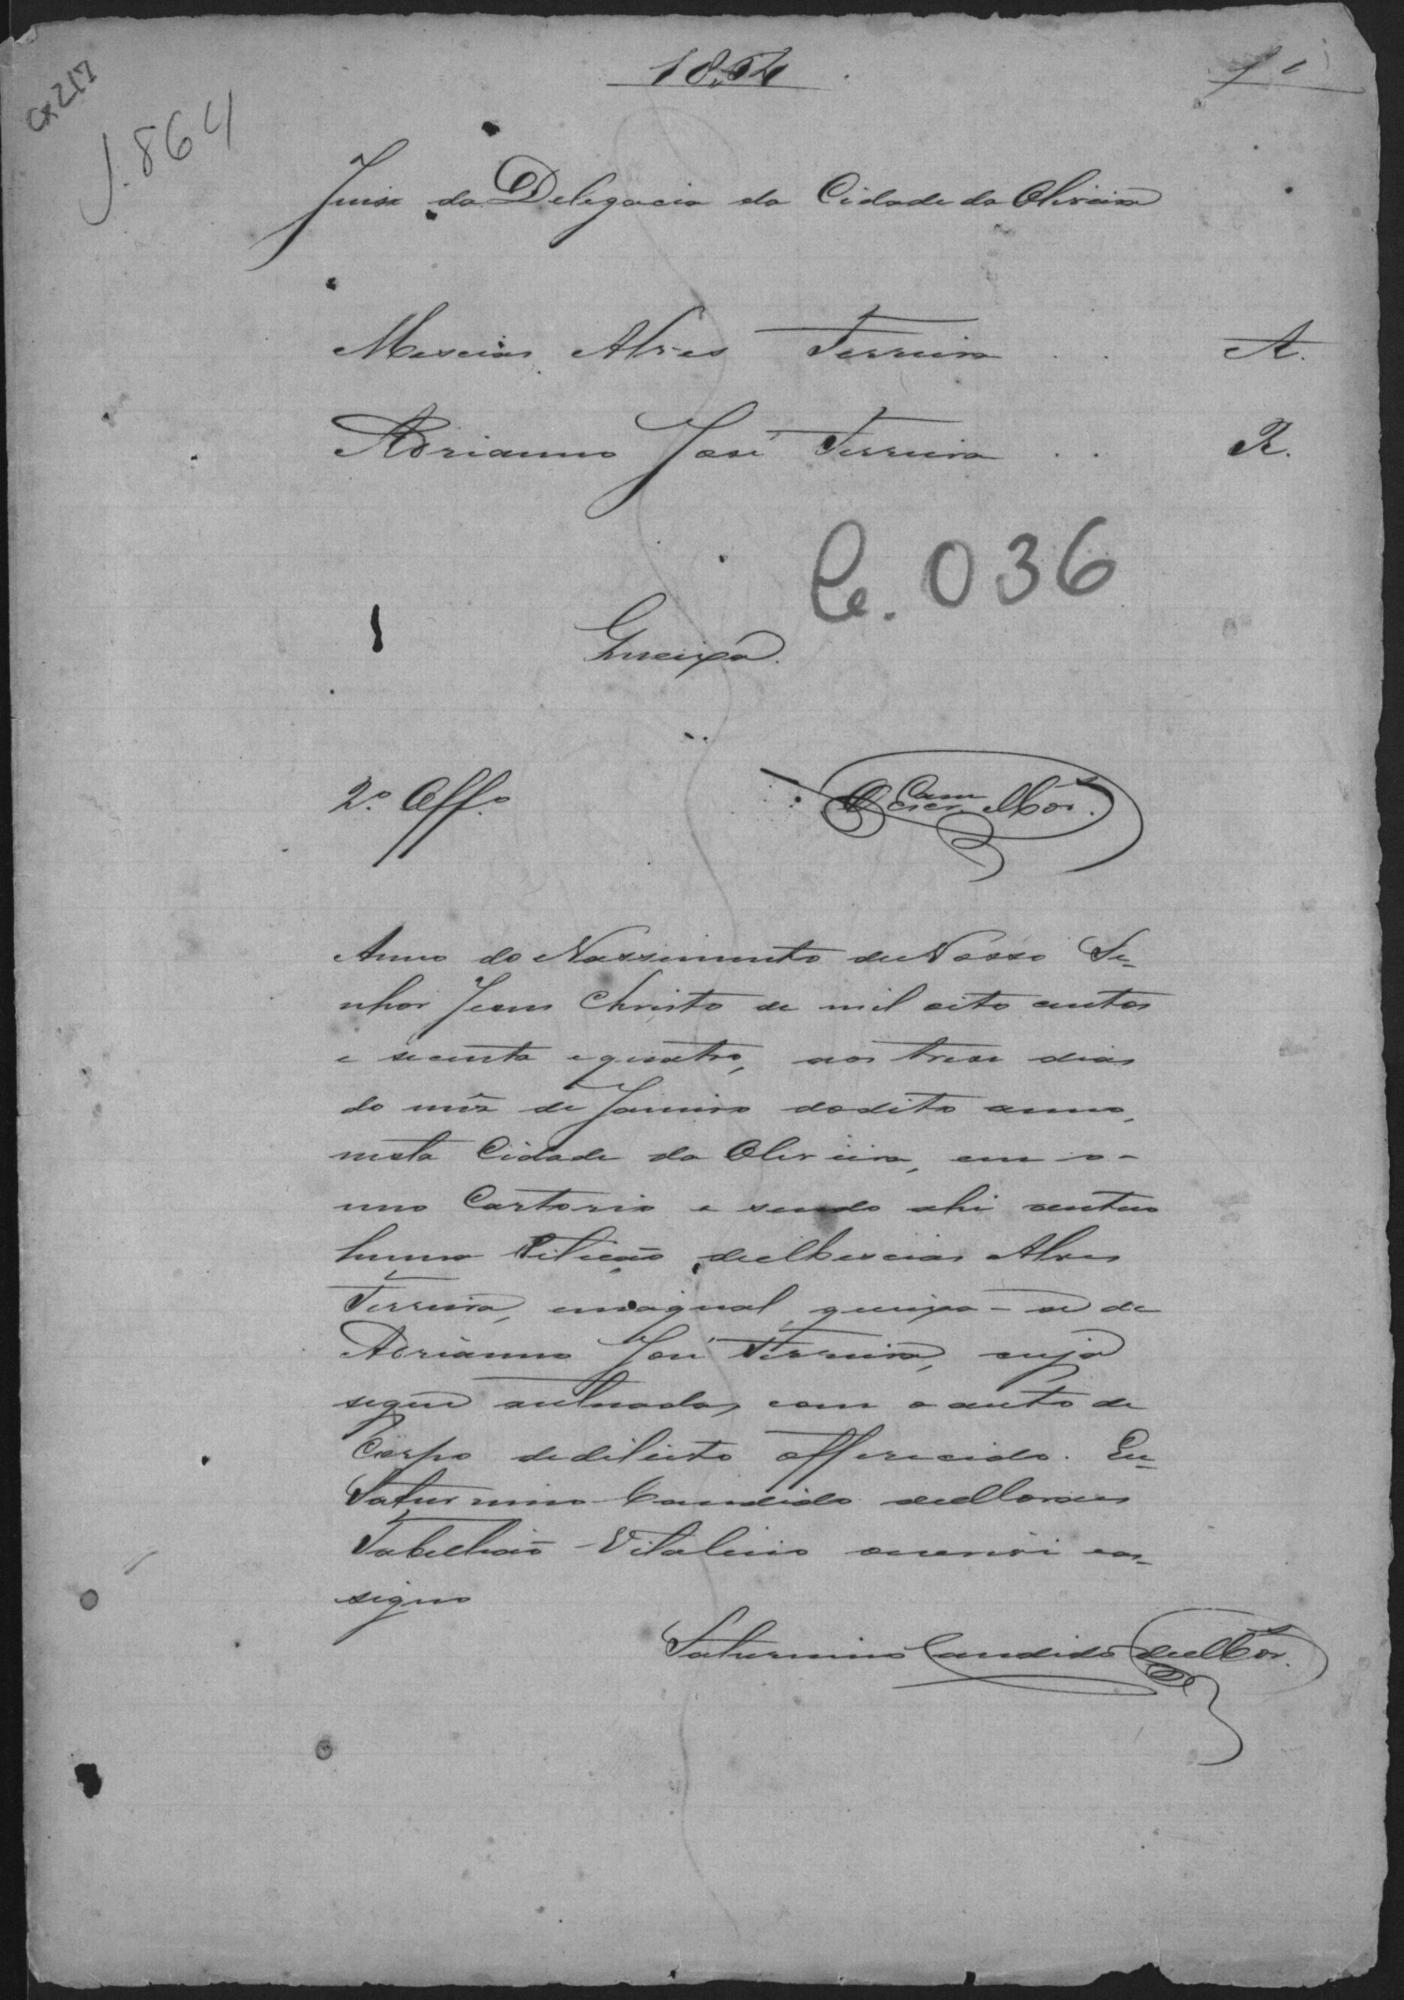 1864
1
Cx 217
J. 864
Juiso da Delegacia da Cidade da Oliveira
Messias Alves Ferreira . . A.
Adrianno José Ferreira . . R.
Cr. 036
Queixa.
2.º Off.º
Escr.
Anno do Nassimento de Nosso Se-
nhor Jesus Christo de mil oito centos
e secenta e quatro, aos trese dias
do mês de Janeiro do dito anno,
nesta Cidade da Oliveira, em o-
meo Cartorio e sendo ahi autuo
huma Petição de Messias Alves
Ferreira, em a qual queixa-se de
Adrianno José Ferreira, cuja
segue autuada, com o auto de
Corpo de delicto offerecido. Eu
Saturnino Candido de Moraes
Tabelliaõ Vitalicio escrevi e as-
signo
Saturnino Candido de